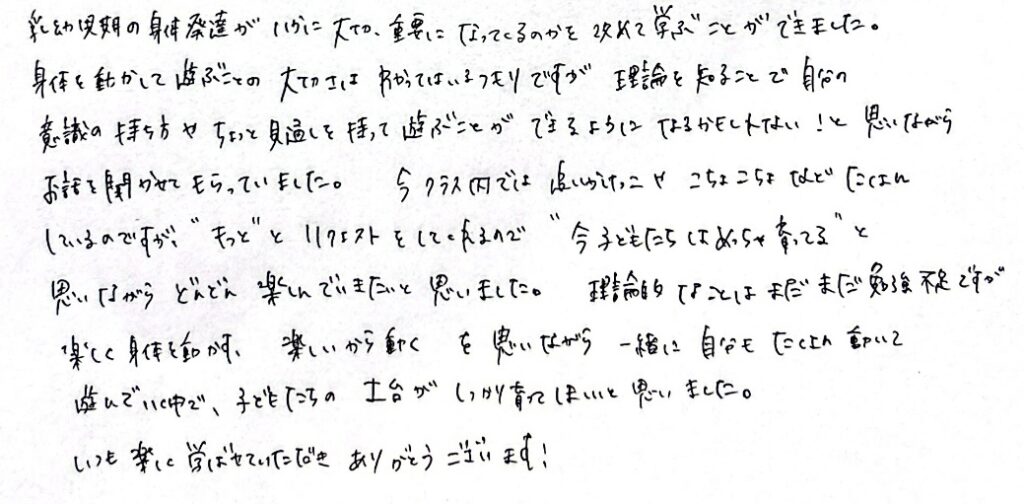 乳幼児期の身体発達がいかに大切、重要になってくるのかを改めて学ぶことができました。
身体を動かして遊ぶことの大切さはわかってはいるつもりですが理論を知ることで自分の
意識の持ち方やちょっと見通しを持って遊ぶことができるようになるかもしれない!と思いながら
お話を聞かせてもらっていました。 今クラス内では追いかけっこやこちょこちょなどたくさん
しているのですが、"もっと"とリクエストをしてくれるので"今子どもたちはめっちゃ育ってる"と
思いながらどんどん楽しんでいきたいと思いました。 理論的なことはまだまだ勉強不足ですが
楽しく身体を動かす、楽しいから動く を思いながら一緒に自分もたくさん動いて
遊んでいく中で、子どもたちの土台がしっかり育ってほしいと思いました。
いつも楽しく学ばせていただきありがとうございます!